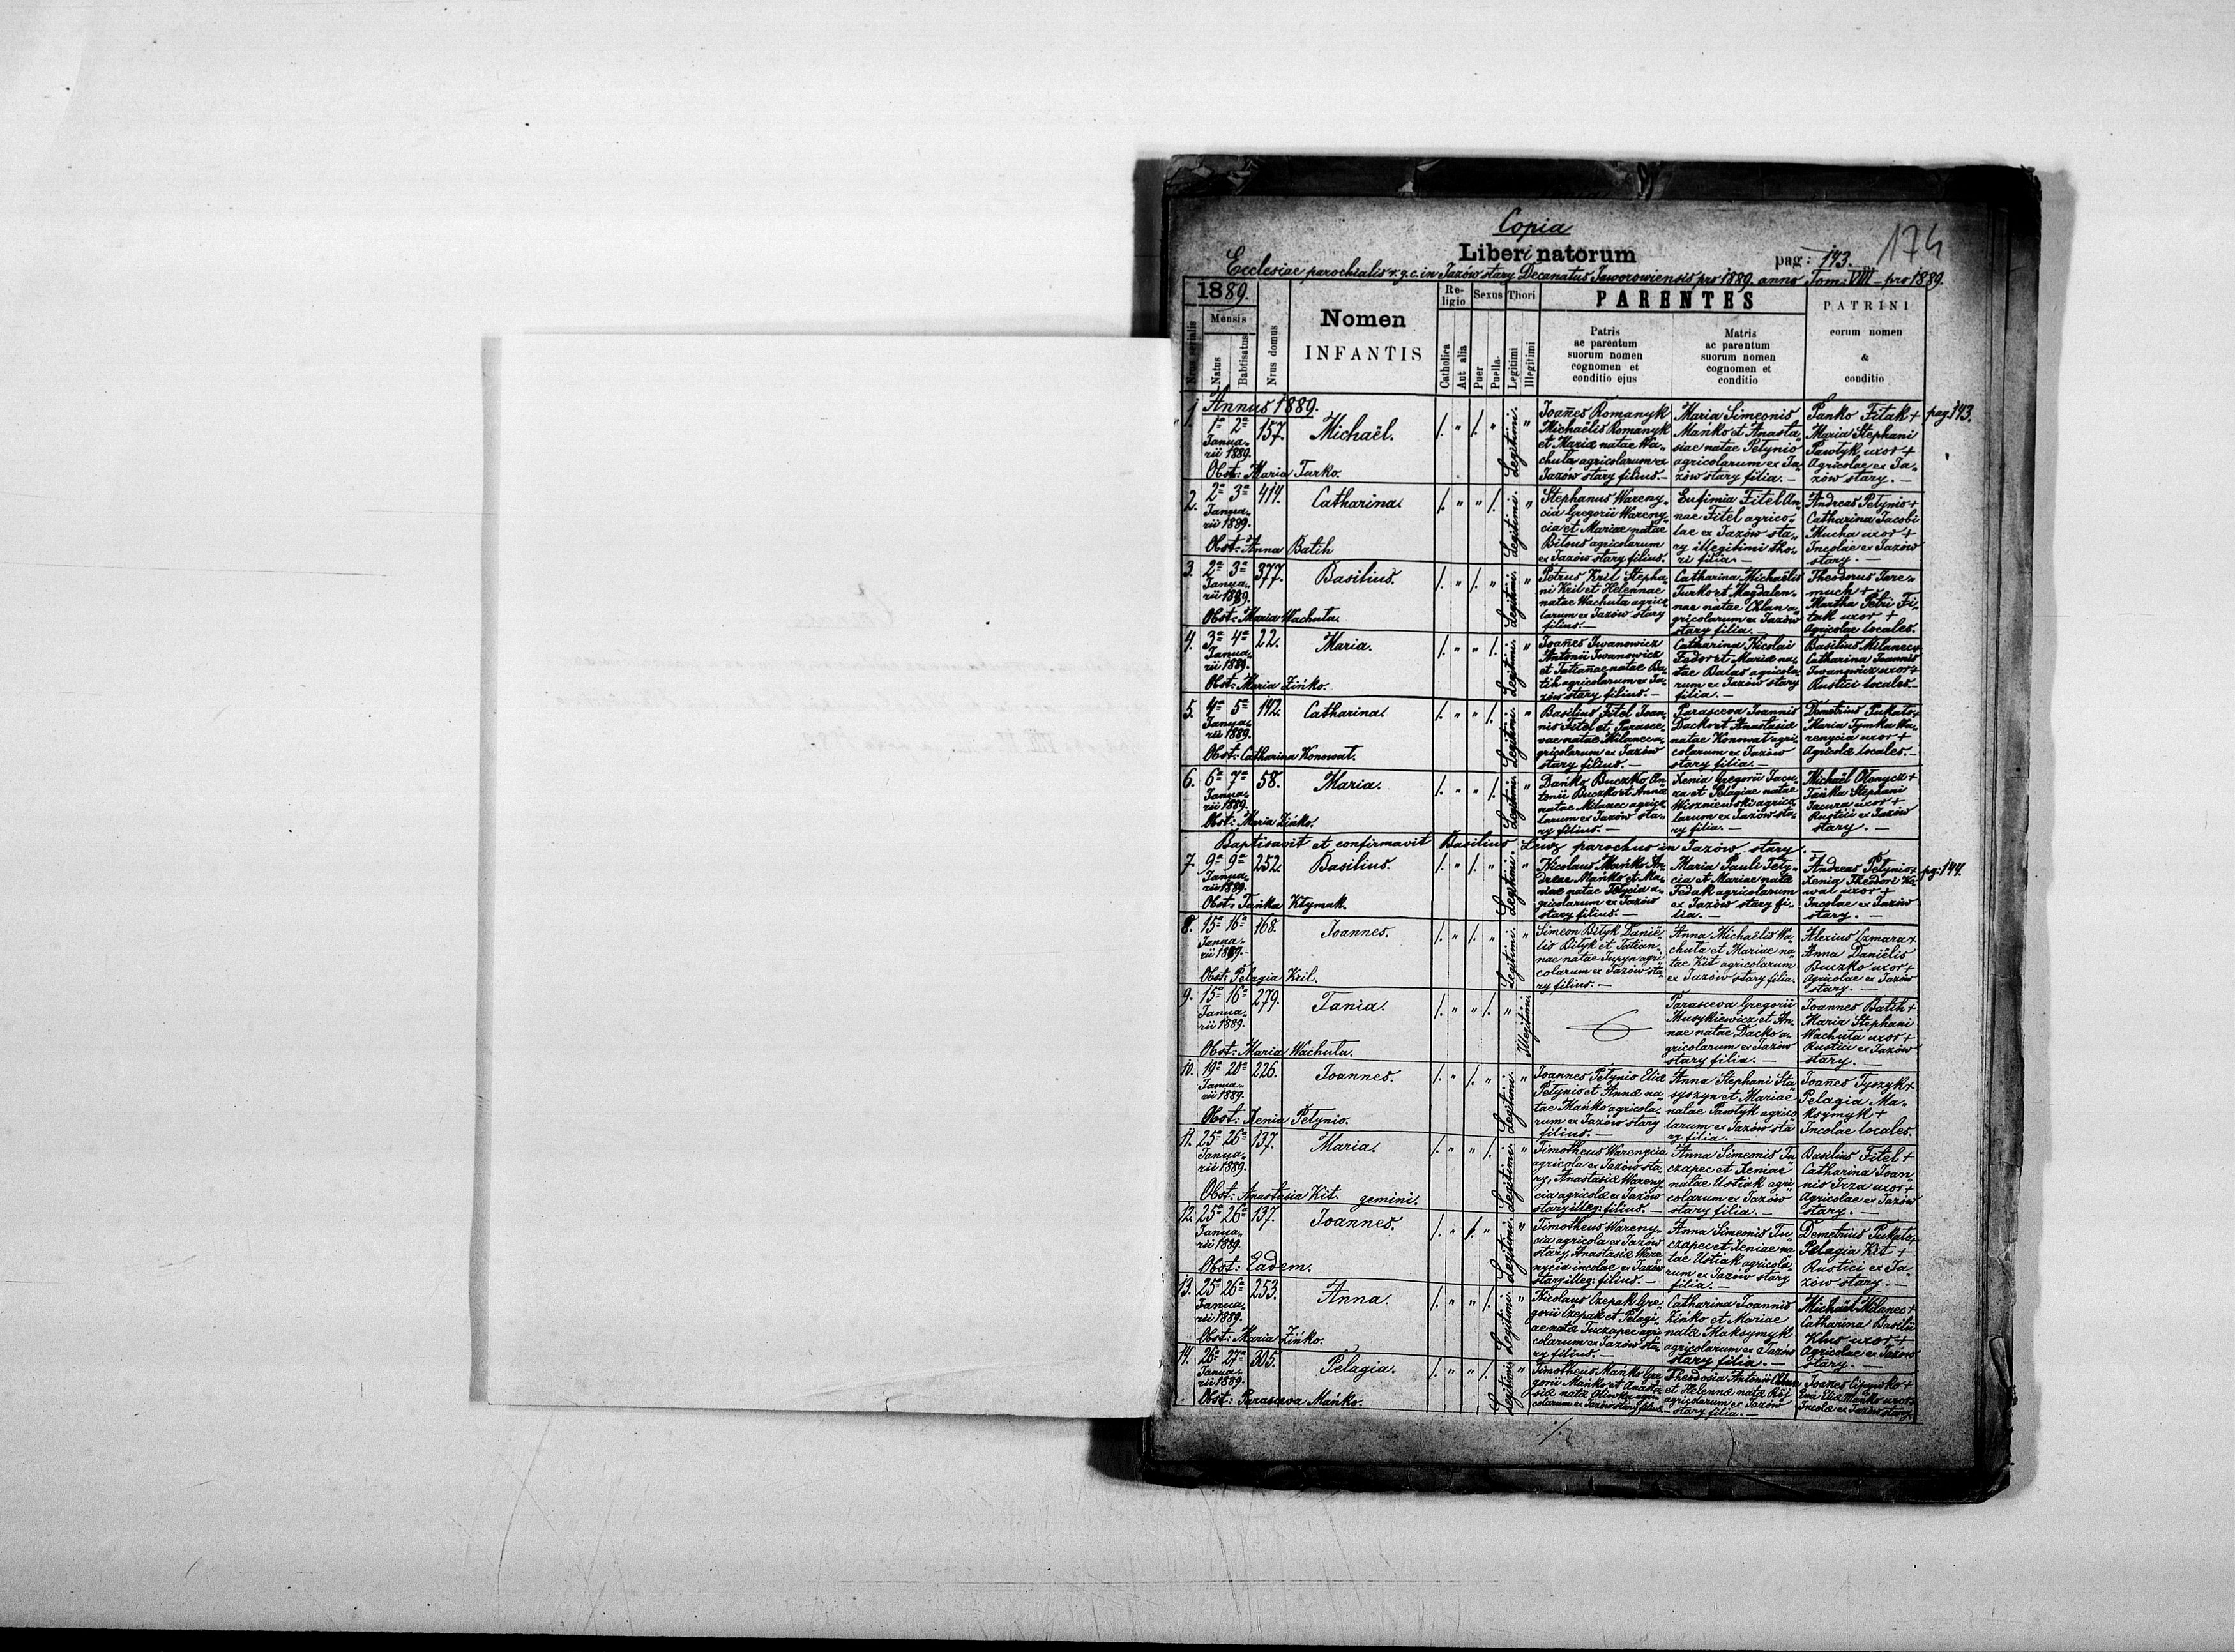 Copia
Liberi natorum
pag: 143.
174
Ecclesiae parochialis r. g. c. in Jazów stary Decanatus Jaworowiensis pro 1889. anno Tom: VIII pro 1889.
1889.
Nrus serialis
Mensis
Natus
Babtisatus
Nrus domus
Nomen
INFANTIS
Religio
Catholica
Aut alia
Sexus
Puer
Puella
Thori
Legitimi
Illegitimi
PARENTES
Patris
ac parentum
suorum nomen
cognomen et
conditio ejus
Matris
ac parentum
suorum nomen
cognomen et
conditio
PATRINI
eorum nomen
&
conditio
Annus 1889.
1. 1a 2a Januarii 1889. 157. Michaël. Legitimi.
Obst: Maria Turko.
Joannes Romanyk
Michaëlis Romanyk
et Mariæ natae Wa-
chula agricolarum ex
Jazów stary filius. —
Maria Simeonis
Mańko et Anasta-
siae natae Petynio
agricolarum ex Ja-
zów stary filia. —
Panko Fitak +
Maria Stephani
Pawłyk uxor +
Agricolae ex Ja-
zów stary. —
pag 143.
2. 2a 3a Januarii 1889. 414. Catharina. Legitimi.
Obst: Anna Batih
Stephanus Wareny-
cia Gregorii Wareny-
cia et Mariae natae
Bitous agricolarum
ex Jazów stary filius.
Eufimia Fitel An-
nae Fitel agrico-
lae ex Jazów sta-
ry illegitimi tho-
ri filia. —
Andreas Petynio +
Catharina Jacobi
Mucha uxor +
Incolae ex Jazów
stary. —
3. 2a 3a Januarii 1889. 377. Basilius. Legitimi.
Obst: Maria Wachula.
Petrus Kril Stepha-
ni Kril et Helennae
natae Wachula agrico-
larum ex Jazów stary
filius. —
Catharina Michaëlis
Turko et Magdalen-
nae natae Chlan a-
gricolarum ex Jazów
stary filia. —
Theodorus Jare-
much +
Martha Petri Fi-
tak uxor +
Agricolae locales.
4. 3a 4a Januarii 1889. 22. Maria. Legitimi.
Obst: Maria Zińko.
Joannes Iwanowicz
Antonii Iwanowicz
et Tatiannae natae Ba-
tih agricolarum ex Ja-
zów stary filius. —
Catharina Nicolai
Fedor et Mariæ na-
tae Balas agricola-
rum ex Jazów stary
filia. —
Basilius Milanec +
Catharina Joannis
Iwanowicz uxor +
Rustici locales. —
5. 4a 5a Januarii 1889. 142. Catharina. Legitimi.
Obst: Catharina Konowat.
Basilius Fitel Joan-
nis Fitel et Parasce-
vae natae Milanec a-
gricolarum ex Jazów
stary filius. —
Parasceva Joannis
Dacko et Anastasiæ
natae Konowat agri-
colarum ex Jazów
stary filia. —
Demetrius Pukało +
Maria Tymka Wa-
renycia uxor +
Agricolæ locales. —
6. 6a 7a Januarii 1889. 58. Maria. Legitimi.
Obst: Maria Zińko.
Dańko Buczko, An-
tonii Buczko et Annæ
natae Milanec agrico-
larum ex Jazów sta-
ry filius. —
Xenia Gregorii Jacu-
ra et Pelagiae natae
Wiszniewski agrico-
larum ex Jazów sta-
ry filia. —
Michaël Ołonycz +
Tańka Stephani
Jacura uxor +
Rustici ex Jazów
stary. —
Baptisavit et confirmavit Basilius parochus in Jazów stary. —
7. 9a 9a Januarii 1889. 252. Basilius. Legitimi.
Obst: Tańka Kłymak.
Nicolaus Mańko An-
dreae Mańko et Ma-
riae natae Petycia a-
gricolarum ex Jazów
stary filius. —
Maria Pauli Pety-
cia et Mariae natæ
Fedak agricolarum
ex Jazów stary fi-
lia. —
Andreas Petynio +
Xenia Theodori Ko-
wal uxor +
Incolae ex Jazów
stary. —
pg: 144.
8. 15a 16a Januarii 1889. 168. Joannes. Legitimi.
Obst: Pelagia Kril.
Simeon Bityk Danië-
lis Bityk et Tatian-
nae natae Jupyn agri-
colarum ex Jazów sta-
ry filius. —
Anna Michaëlis Wa-
chula et Mariae na-
tae Kit agricolarum
ex Jazów stary filia.
Alexius Czmara +
Anna Daniëlis
Buczko uxor +
Agricolae ex Jazów
stary. —
9. 15a 16a Januarii 1889. 279. Tania. Illegitimi
Obst: Maria Wachula.
Parasceva Gregorii
Musykiewicz et An-
nae natae Dacko a-
gricolarum ex Jazów
stary filia. —
Joannes Batih +
Maria Stephani
Wachula uxor +
Rustici ex Jazów
stary. —
10. 19a 20a Januarii 1889. 226. Joannes. Legitimi.
Obst: Xenia Petynio.
Joannes Petynio Eliæ
Petynio et Annæ na-
tae Mańko agricola-
rum ex Jazów stary
filius. —
Anna Stephani Sta-
syszyn et Mariae
natae Pawłyk agrico-
larum ex Jazów sta-
ry filia. —
Joannes Tyszyk +
Pelagia Ma-
ksymyk +
Incolae locales.
11. 25a 26a Januarii 1889. 137. Maria. Legitimi.
Obst: Anastasia Kit. gemini.
Timotheus Warenycia
agricola ex Jazów sta-
ry, Anastasiæ Wareny-
cia agricolæ ex Jazów
stary illeg: filius. —
Anna Simeonis Tu-
czapec et Xeniae
natae Ustiak agri-
colarum ex Jazów
stary filia. —
Basilius Fitel +
Catharina Joan-
nis Irza uxor +
Agricolae ex Jazów
stary. —
12. 25a 26a Januarii 1889. 137. Joannes. Legitimi.
Obst: Eadem.
Timotheus Wareny-
cia agricola ex Jazów
stary, Anastasiæ Ware-
nycia incolae ex Jazów
stary illeg: filius. —
Anna Simeonis Tu-
czapec et Xeniae na-
tae Ustiak agricola-
rum ex Jazów stary
filia. —
Demetrius Pukało +
Pelagia Kit +
Rustici ex Ja-
zów stary. —
13. 25a 26a Januarii 1889. 253. Anna. Legitimi.
Obst: Maria Zińko.
Nicolaus Czepak Gre-
gorii Czepak et Pelagi-
ae natæ Tuczapec agri-
colarum ex Jazów sta-
ry filius. —
Catharina Joannis
Zińko et Mariae
natæ Maksymyk
agricolarum ex Jazów
stary filia. —
Michaël Milanec +
Catharina Basilii
Klus uxor +
Agricolae ex Jazów
stary. —
14. 26a 27a Januarii 1889. 305. Pelagia. Legitimi.
Obst: Parasceva Mańko.
Timotheus Mańko Gre-
gorii Mańko et Anasta-
siæ natæ Oliwka agri-
colarum ex Jazów stary filius. —
Theodosia Antonii Chlan
et Helennæ natæ Rój
agricolarum ex Jazów
stary filia. —
Joannes +
Eva Eliæ Mańko uxor +
Incolæ ex Jazów stary.